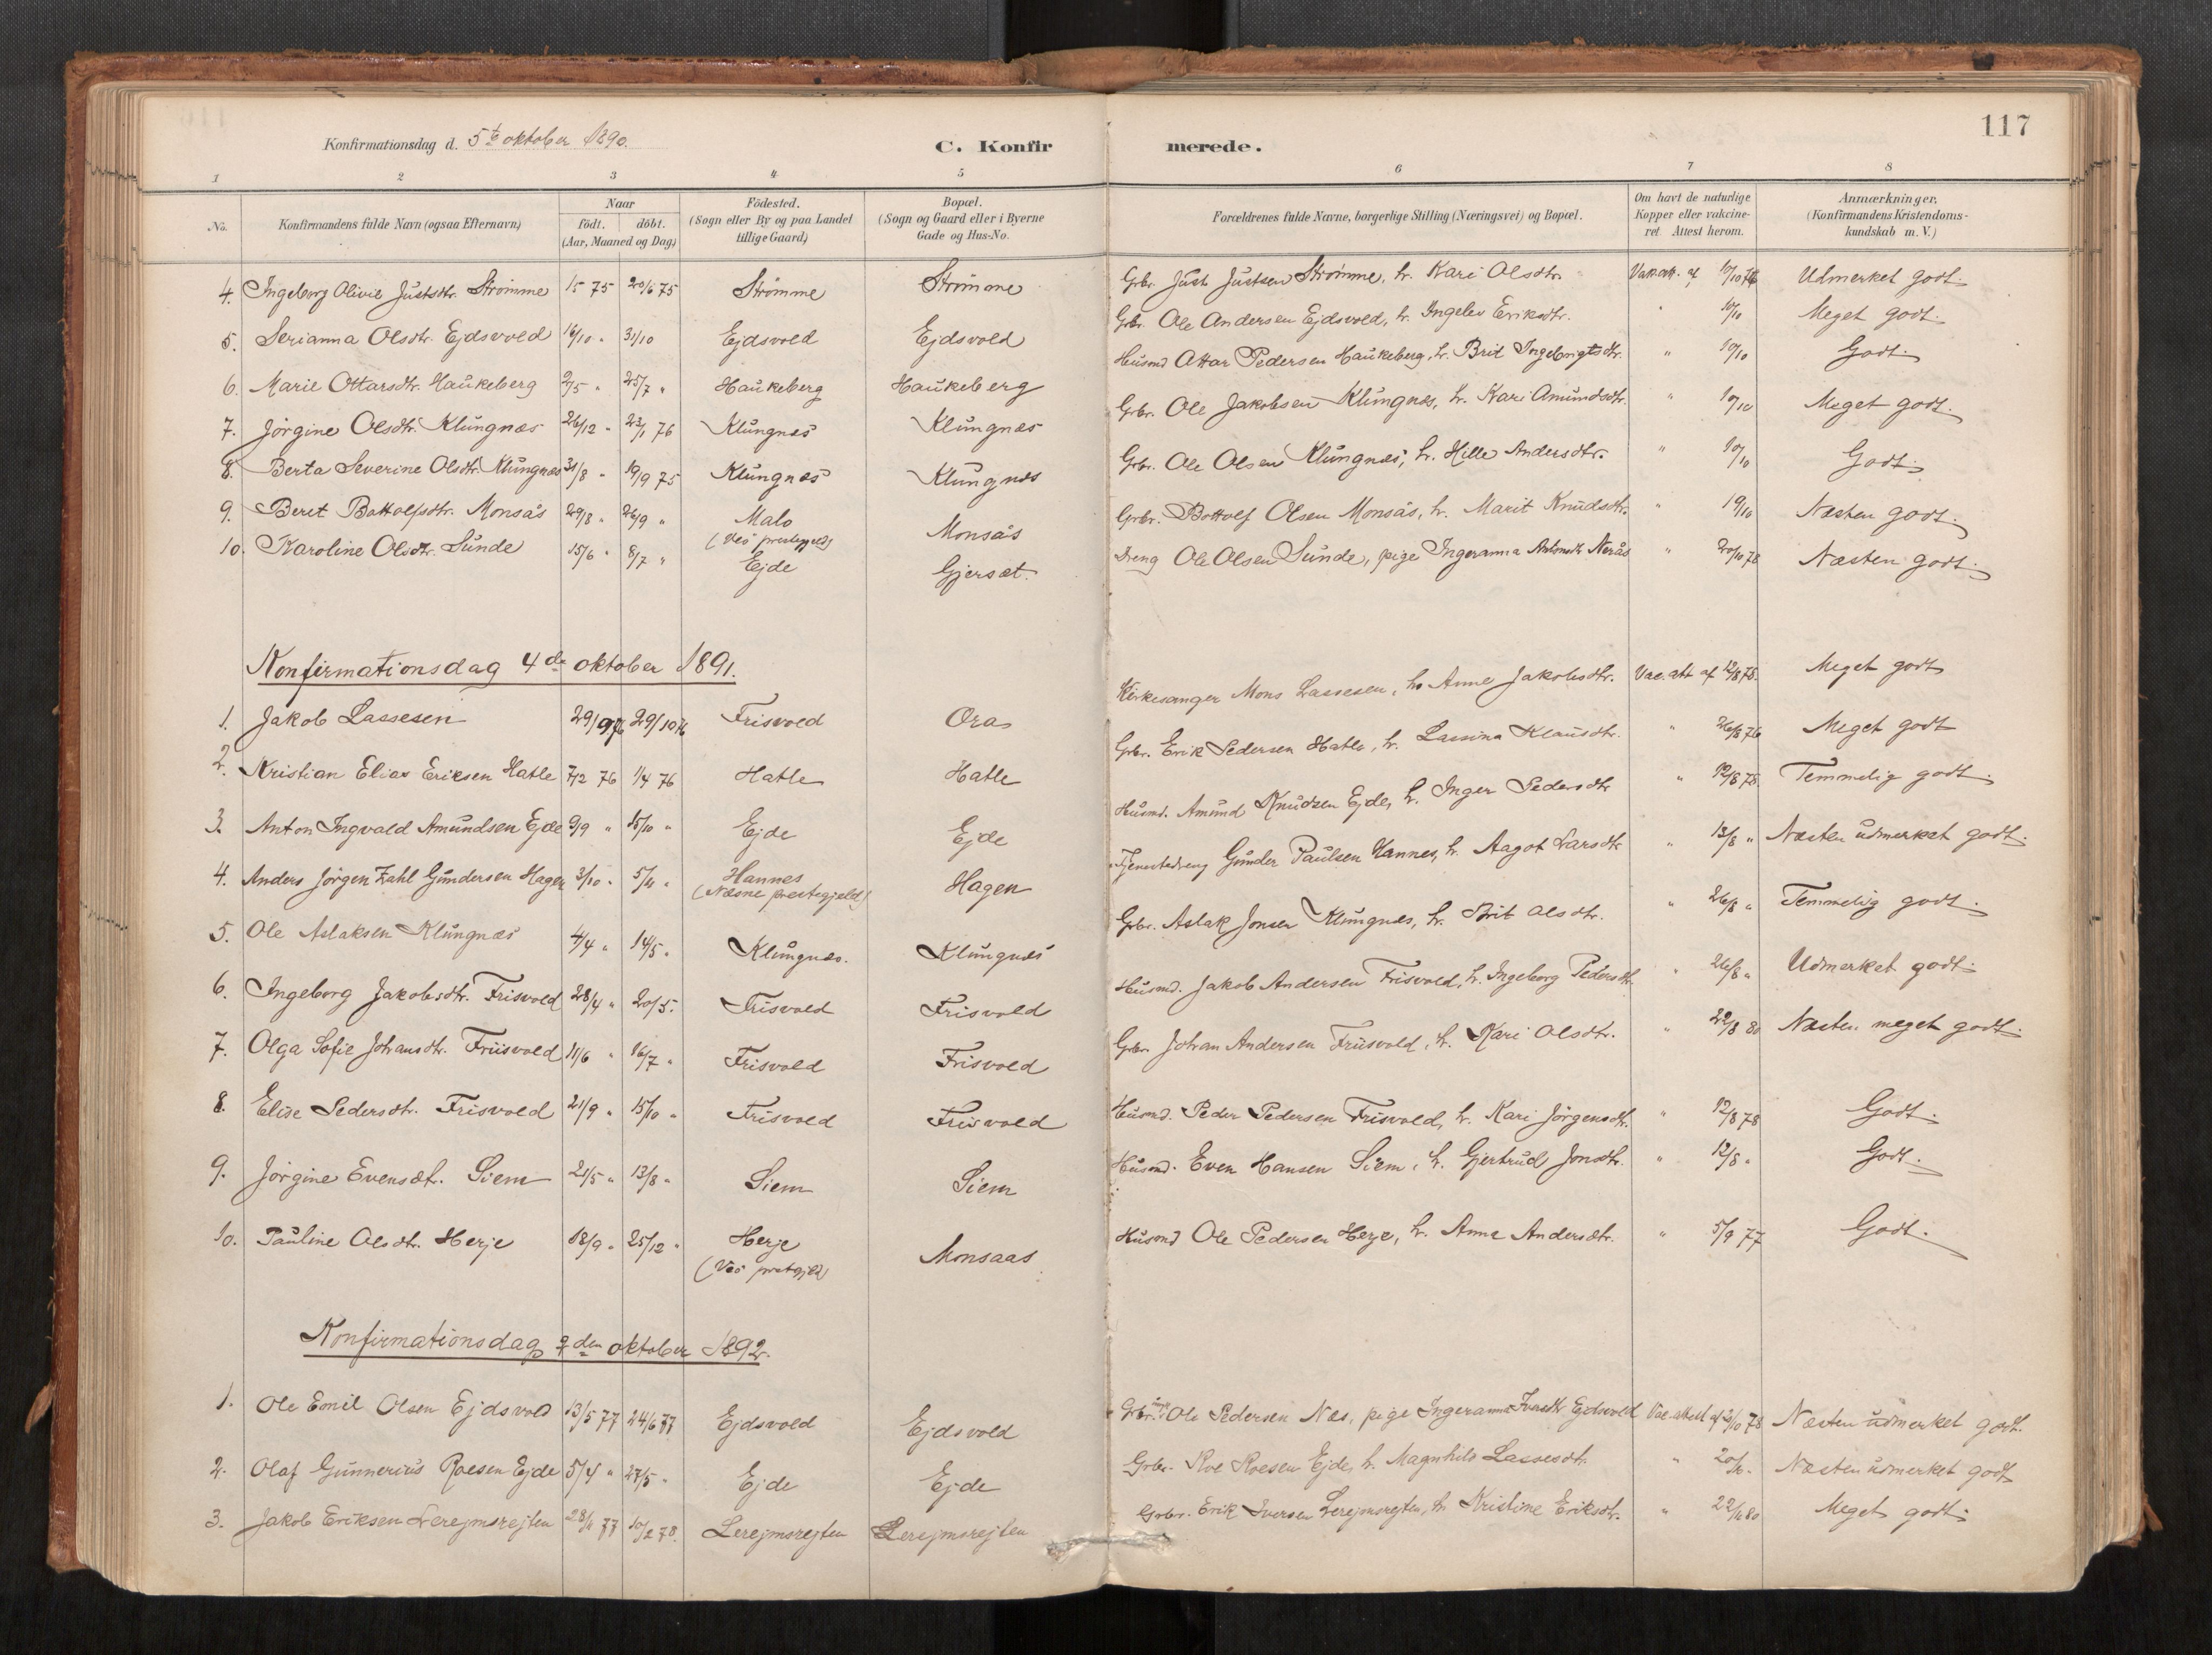 117
Konfirmationsdag d. 5te oktober 1890.
C. Konfirmerede.
1 2 3 4 5 6 7 8
No. Konfirmandens fulde Navn (ogsaa Efternavn) Naar födt. döbt. (Aar, Maaned og Dag) Födested. (Sogn eller By og paa Landet tillige Gaard) Bopæl. (Sogn og Gaard eller i Byerne Gade og Hus-No. Forældrenes fulde Navne, borgerlige Stilling (Næringsvei) og Bopæl. Om havt de naturlige Kopper eller vakcineret. Attest herom. Anmærkninger. (Konfirmandens Kristendomskundskab m. V.)
4. Ingeborg Olivie Justsdtr. Strømme 75 20/6 75 Strømme Strømme Gbr. Just Justsen Strømme, h. Kari Olsdtr. Udmerket godt.
5. Serianna Olsdtr. Ejdsvold 16/10 " 31/10 Ejdsvold Ejdsvold Gbr. Ole Andersen Ejdsvold, h. Ingelev Eriksdtr. " 10/10 Meget godt.
6. Marie Ottarsdtr. Haukeberg 2/5 " 25/7 " Haukeberg Haukeberg Husmd Ottar Pedersen Haukeberg, h. Brit Ingebrigtsdtr. " 10/10 Godt.
7. Jørgine Olsdtr. Klungnæs 26/12 " 23/1 76 Klungnæs Klungnæs Gbr. Ole Jakobsen Klungnæs, h. Kari Amundsdtr. " 10/10 Meget godt.
8. Berta Severine Olsdtr. Klungnæs 31/8 " 19/9 75 Klungnæs Klungnæs Gbr. Ole Olsen Klungnæs, h. Hille Andersdtr. " 10/10 Godt.
9. Beret Bottolfsdtr. Monsås 29/8 " 26/9 " Malo (Veø prestegjeld) Monsås Gbr. Bottolf Olsen Monsås, h. Marit Knudsdtr. " 19/10 Næsten godt.
10. Karoline Olsdtr. Sunde 15/6 " 8/7 " Ejde Gjersæt. Dreng Ole Olsen Sunde, pige Ingeranna Nerås " 20/10 78 Næsten godt.
Konfirmationsdag 4de oktober 1891.
1. Jakob Lassesen 29/9 76 29/10 76 Frisvold Ora Kirkesanger Mons Lassesen, h. Anne Jakobsdtr. Vac. att af 12/8 78. Meget godt
2. Kristian Elias Eriksen Hatle 7/12 76 1/4 76 Hatle Hatle Gbr. Erik Pedersen Hatle, h. Lassina Klausdtr. " 26/8 76 Meget godt
3. Anton Ingvald Amundsen Ejde 9/9 " 15/10 " Ejde Ejde Husmd. Amund Knudsen Ejde, h. Inger Pedersdtr " 12/8 78. Temmelig godt.
4. Anders Jørgen Zahl Gundersen Hagen 3/10 " 5/11 " Hannes (Næsne prestegjeld) Hagen Tjenestedreng Gunder Paulsen Hannes, h. Aagot Larsdtr " 13/8 " Næsten udmerket godt.
5. Ole Aslaksen Klungnæs 4/4 " 14/5 " Klungnæs. Klungnæs Gbr. Aslak Jonsen Klungnæs, h. Brit Olsdtr. " 26/8 " Temmelig godt.
6. Ingeborg Jakobsdtr. Frisvold 28/4 " 20/5. Frisvold Frisvold Husmd. Jakob Andersen Frisvold, h. Ingeborg Pedersdtr. " 26/8 " Udmerket godt.
7. Olga Sofie Johansdtr. Friisvold 11/6 " 16/7 " Frisvold Frisvold Gbr. Johan Andersen Friisvold, h. Kari Olsdtr. " 22/8 80 Næsten meget godt.
8. Elise Pedersdtr. Frisvold 21/9 " 15/10 " Frisvold Frisvold Husmd. Peder Pedersen Frisvold, h. Kari Jørgensdtr. " 12/8 78 Godt.
9. Jørgine Evensdt. Siem 21/5 " 13/8 " Siem Siem Husmd. Even Hansen Siem, h. Gjertrud Jonsdtr. " 12/8 " Godt.
10. Pauline Olsdtr. Herje 18/9 " 25/12 " Herje (Veø prstgjeld) Monsaas Husmd Ole Pedersen Herje, h. Anne Andersdtr. " 5/9 77 Godt.
Konfirmationsdag den oktober 1892.
1. Ole Emil Olsen Ejdsvold 13/5 77 24/6 77 Ejdsvold Ejdsvold Gbr. Ole Pedersen Næs, pige Ingeranna Iversdtr Ejdsvold Vac. attest af 78 Næsten udmerket godt.
2. Olaf Gunnerius Roesen Ejde 5/4 " 27/5 " Ejde Ejde Gbr. Roe Roesen Ejde, h. Magnhild Lassesdtr. " Næsten udmerket godt
3. Jakob Eriksen Lerejmsrejten 28/11 77 10/2 78. Lerejmsrejten Lerejmsrejten Gbr. Erik Iversen Lerejmsrejten, h. Kristine Eriksdtr. " 80 Meget godt.